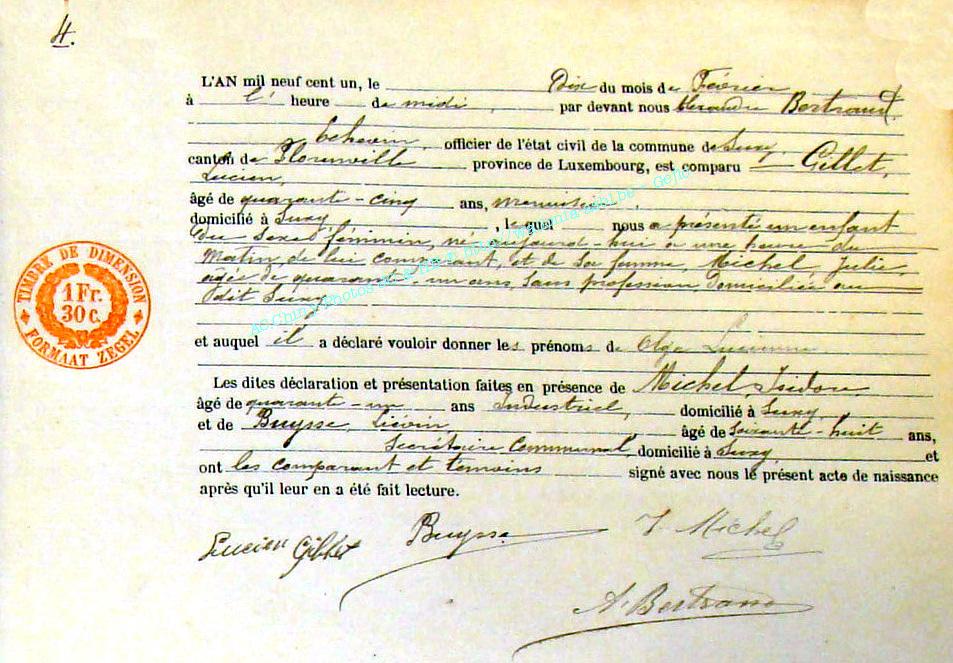 4.
L'AN mil neuf cent un, le Dix du mois de Février
à l' heure de midi, par devant nous Alexandre Bertrand,
Echevin, officier de l'état civil de la commune de Suxy,
canton de Florenville province de Luxembourg, est comparu Gillet,
Lucien,
âgé de quarante-cinq ans, menuisier,
domicilié à Suxy, le quel nous a présenté un enfant
du sexe féminin, né aujourd-hui à une heure du
matin de lui comparant, et de sa femme, Michel, Julie,
agée de quarante-un ans, sans profession, domiciliée au
dit Suxy
et auquel il a déclaré vouloir donner les prénoms de Olga Lucienne
Les dites déclaration et présentation faites en présence de Michel, Isidore,
âgé de quarant-un ans Industriel, domicilié à Suxy
et de Buysse, Liévin, âgé de soixante-huit ans,
Secrétaire Communal domicilié à Suxy et
ont les comparant et temoins signé avec nous le présent acte de naissance
après qu'il leur en a été fait lecture.
TIMBRE DE DIMENSION
1 Fr.
30 c.
FORMAAT ZEGEL
Lucien Gillet
Buysse
J. Michel
A. Bertrand